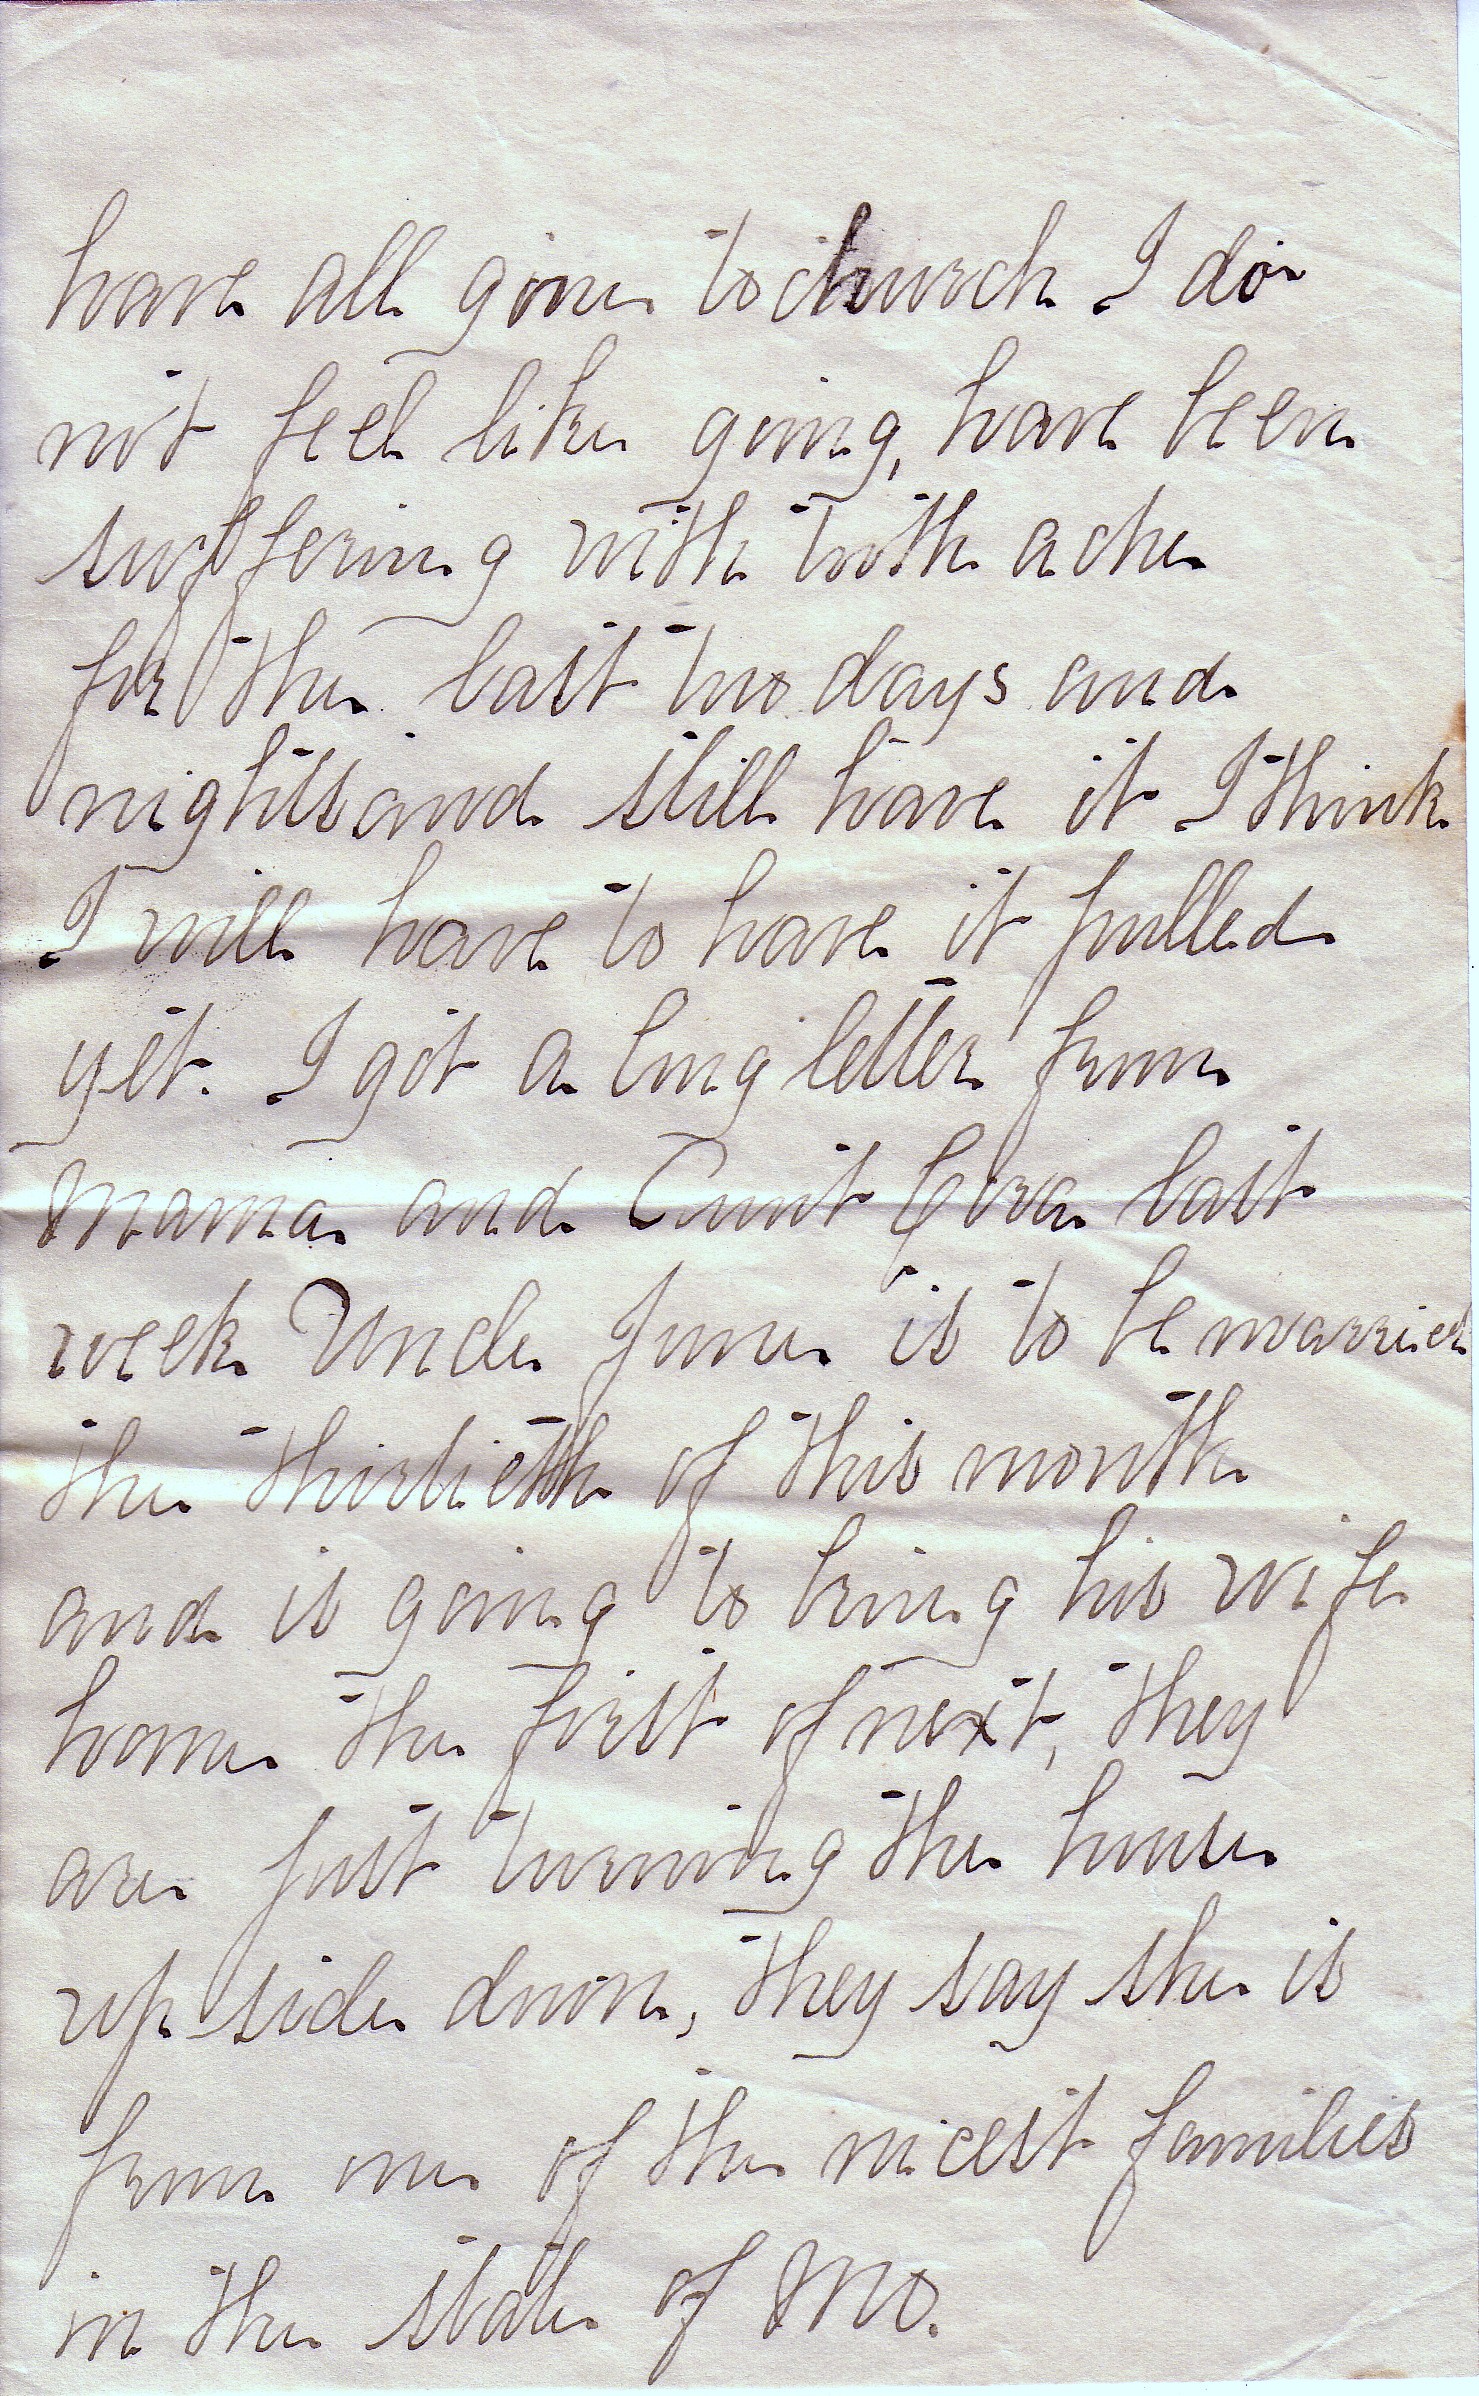 have all gone to church I do
not feel like going, have been
suffering with tooth ache
for the last two days and
nights and still have it I think
I will have to have it pulled
yet. I got a long letter from
Mama and Aunt Cora last
week Uncle June is to be married
the thirtieth of this month
and is going to bring his wife
home the first of next, they
are just turning the house
up side down, they say she is
from one of the nicest families
in the state of Mo.